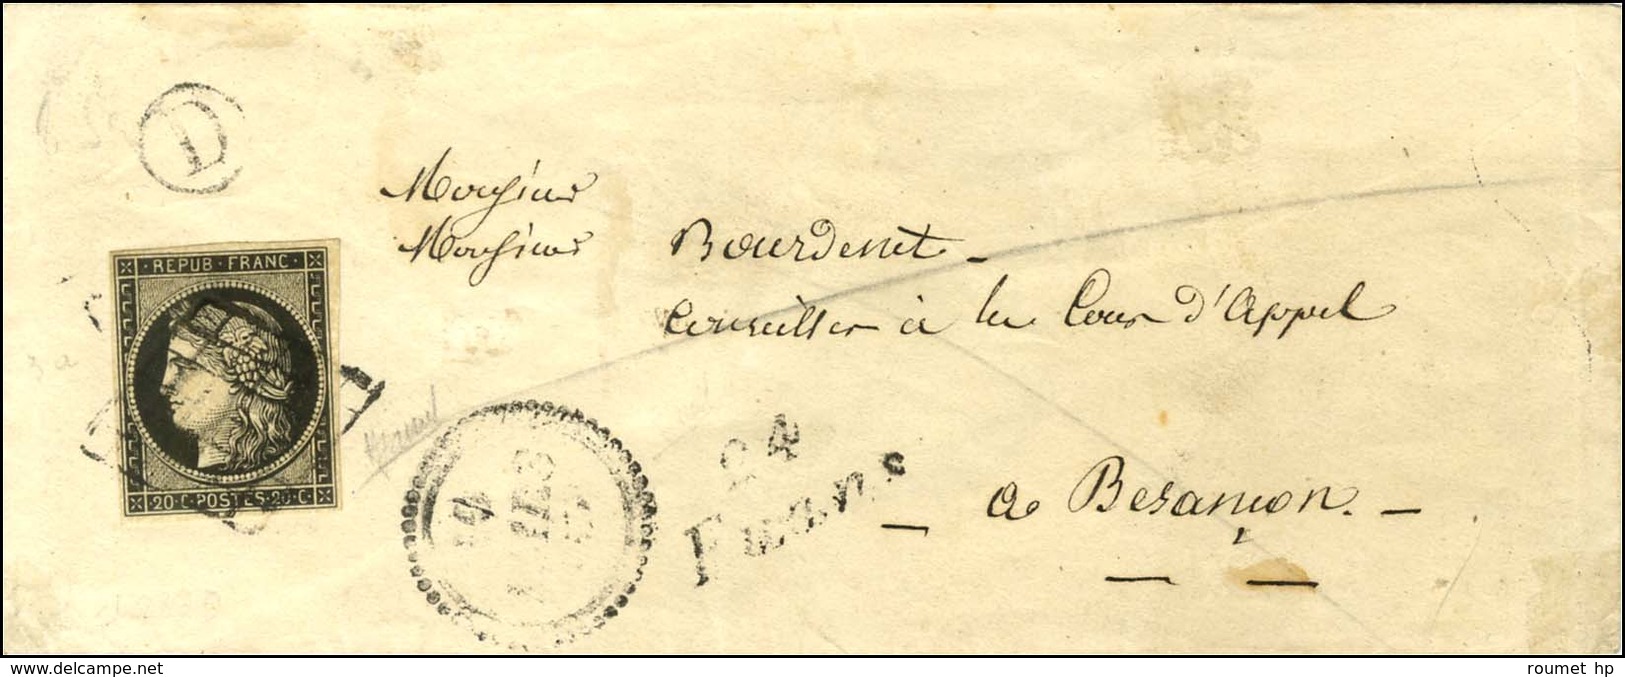 D
Monsieur
Monsieur Bourdenet
Conseiller à la Cour d'Appel
à Besançon.
REPUB·FRANC·
20·C·POSTES·20·C·
24
www.delcampe.net
roumet hp